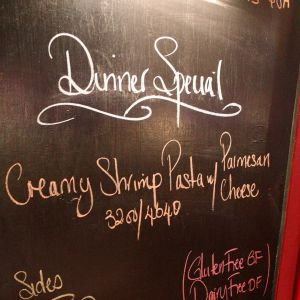 Dinner Special
Creamy Shrimp Pasta w/ Parmesan Cheese
3200/4640
Sides
(Gluten Free GF
Dairy Free DF